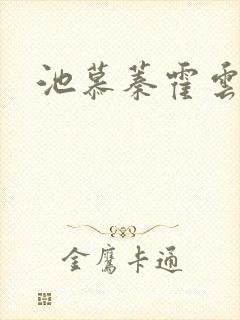 池慕蓁霍雲
金鷹卡通